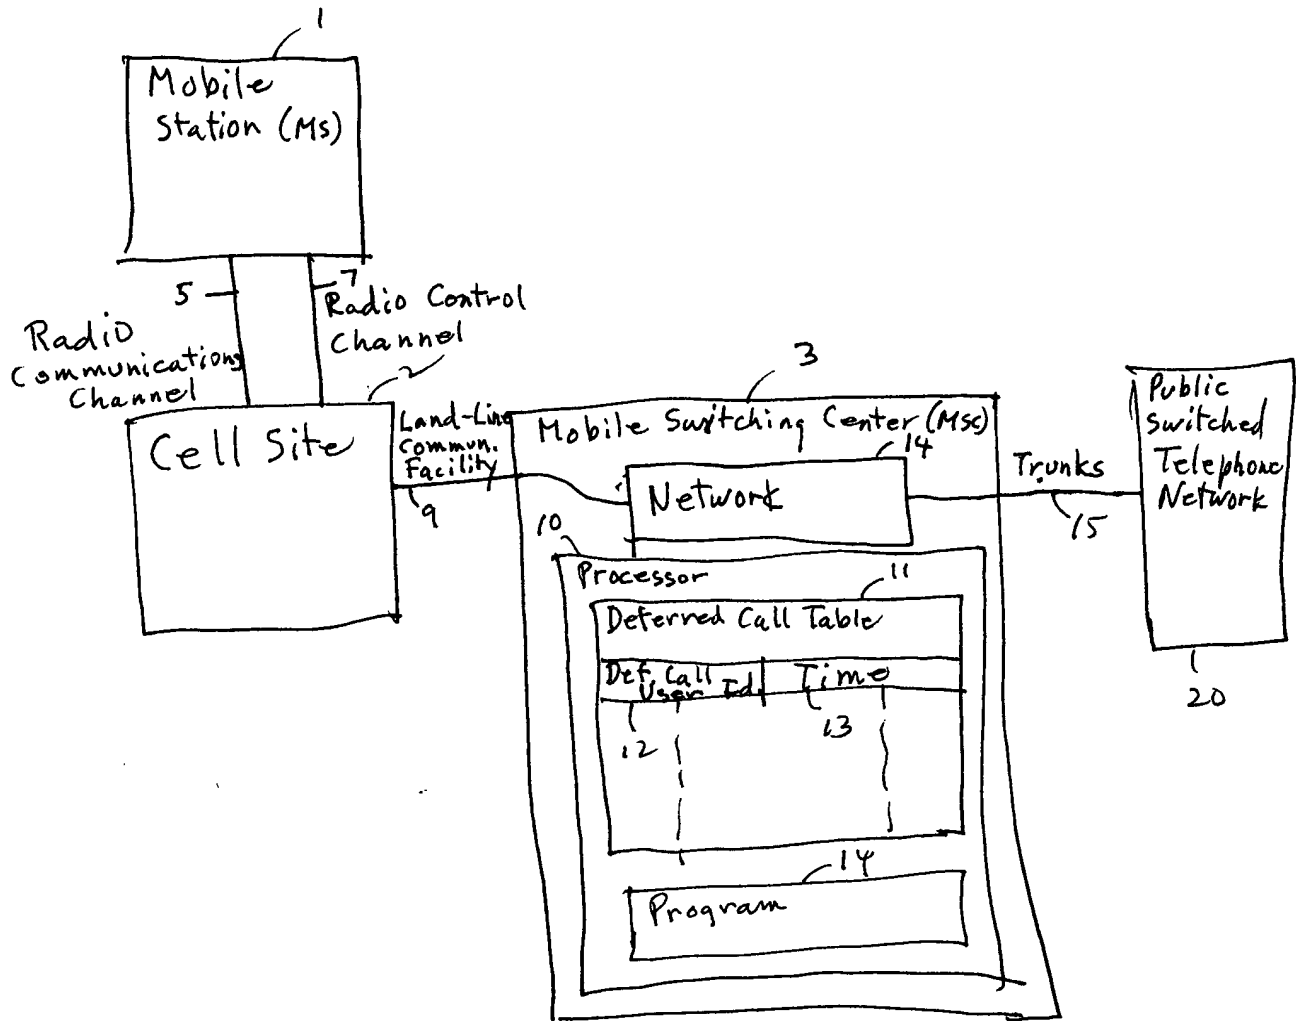 1
Mobile
Station (Ms)
5
7
Radio Control
Channel
Radio
Communications
Channel
2
Cell Site
Land-Line
Commun.
Facility
9
3
Mobile Switching Center (Msc)
14
Network
Trunks
15
Public
Switched
Telephone
Network
20
10
Processor
11
Deferred Call Table
Def. Call
User Id.
Time
12
13
14
Program